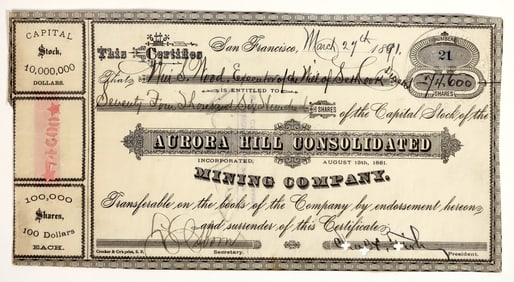 CAPITAL
Stock,
10,000,000
DOLLARS.
74600
100,000
Shares,
100 Dollars
EACH.
This Certifies
San Francisco, March 27th 1891.
NUMBER
21
That Wm S. Wood, Executor of the Will of
IS ENTITLED TO
74,600
SHARES
Seventy Four Thousand Six Hundred
SHARES of the Capital Stock of the
AURORA HILL CONSOLIDATED
INCORPORATED, AUGUST 12th, 1881.
MINING COMPANY.
Transferable on the books of the Company by endorsement hereon
and surrender of this Certificate.
Crocker & Co's print, S. F.
Secretary.
President.